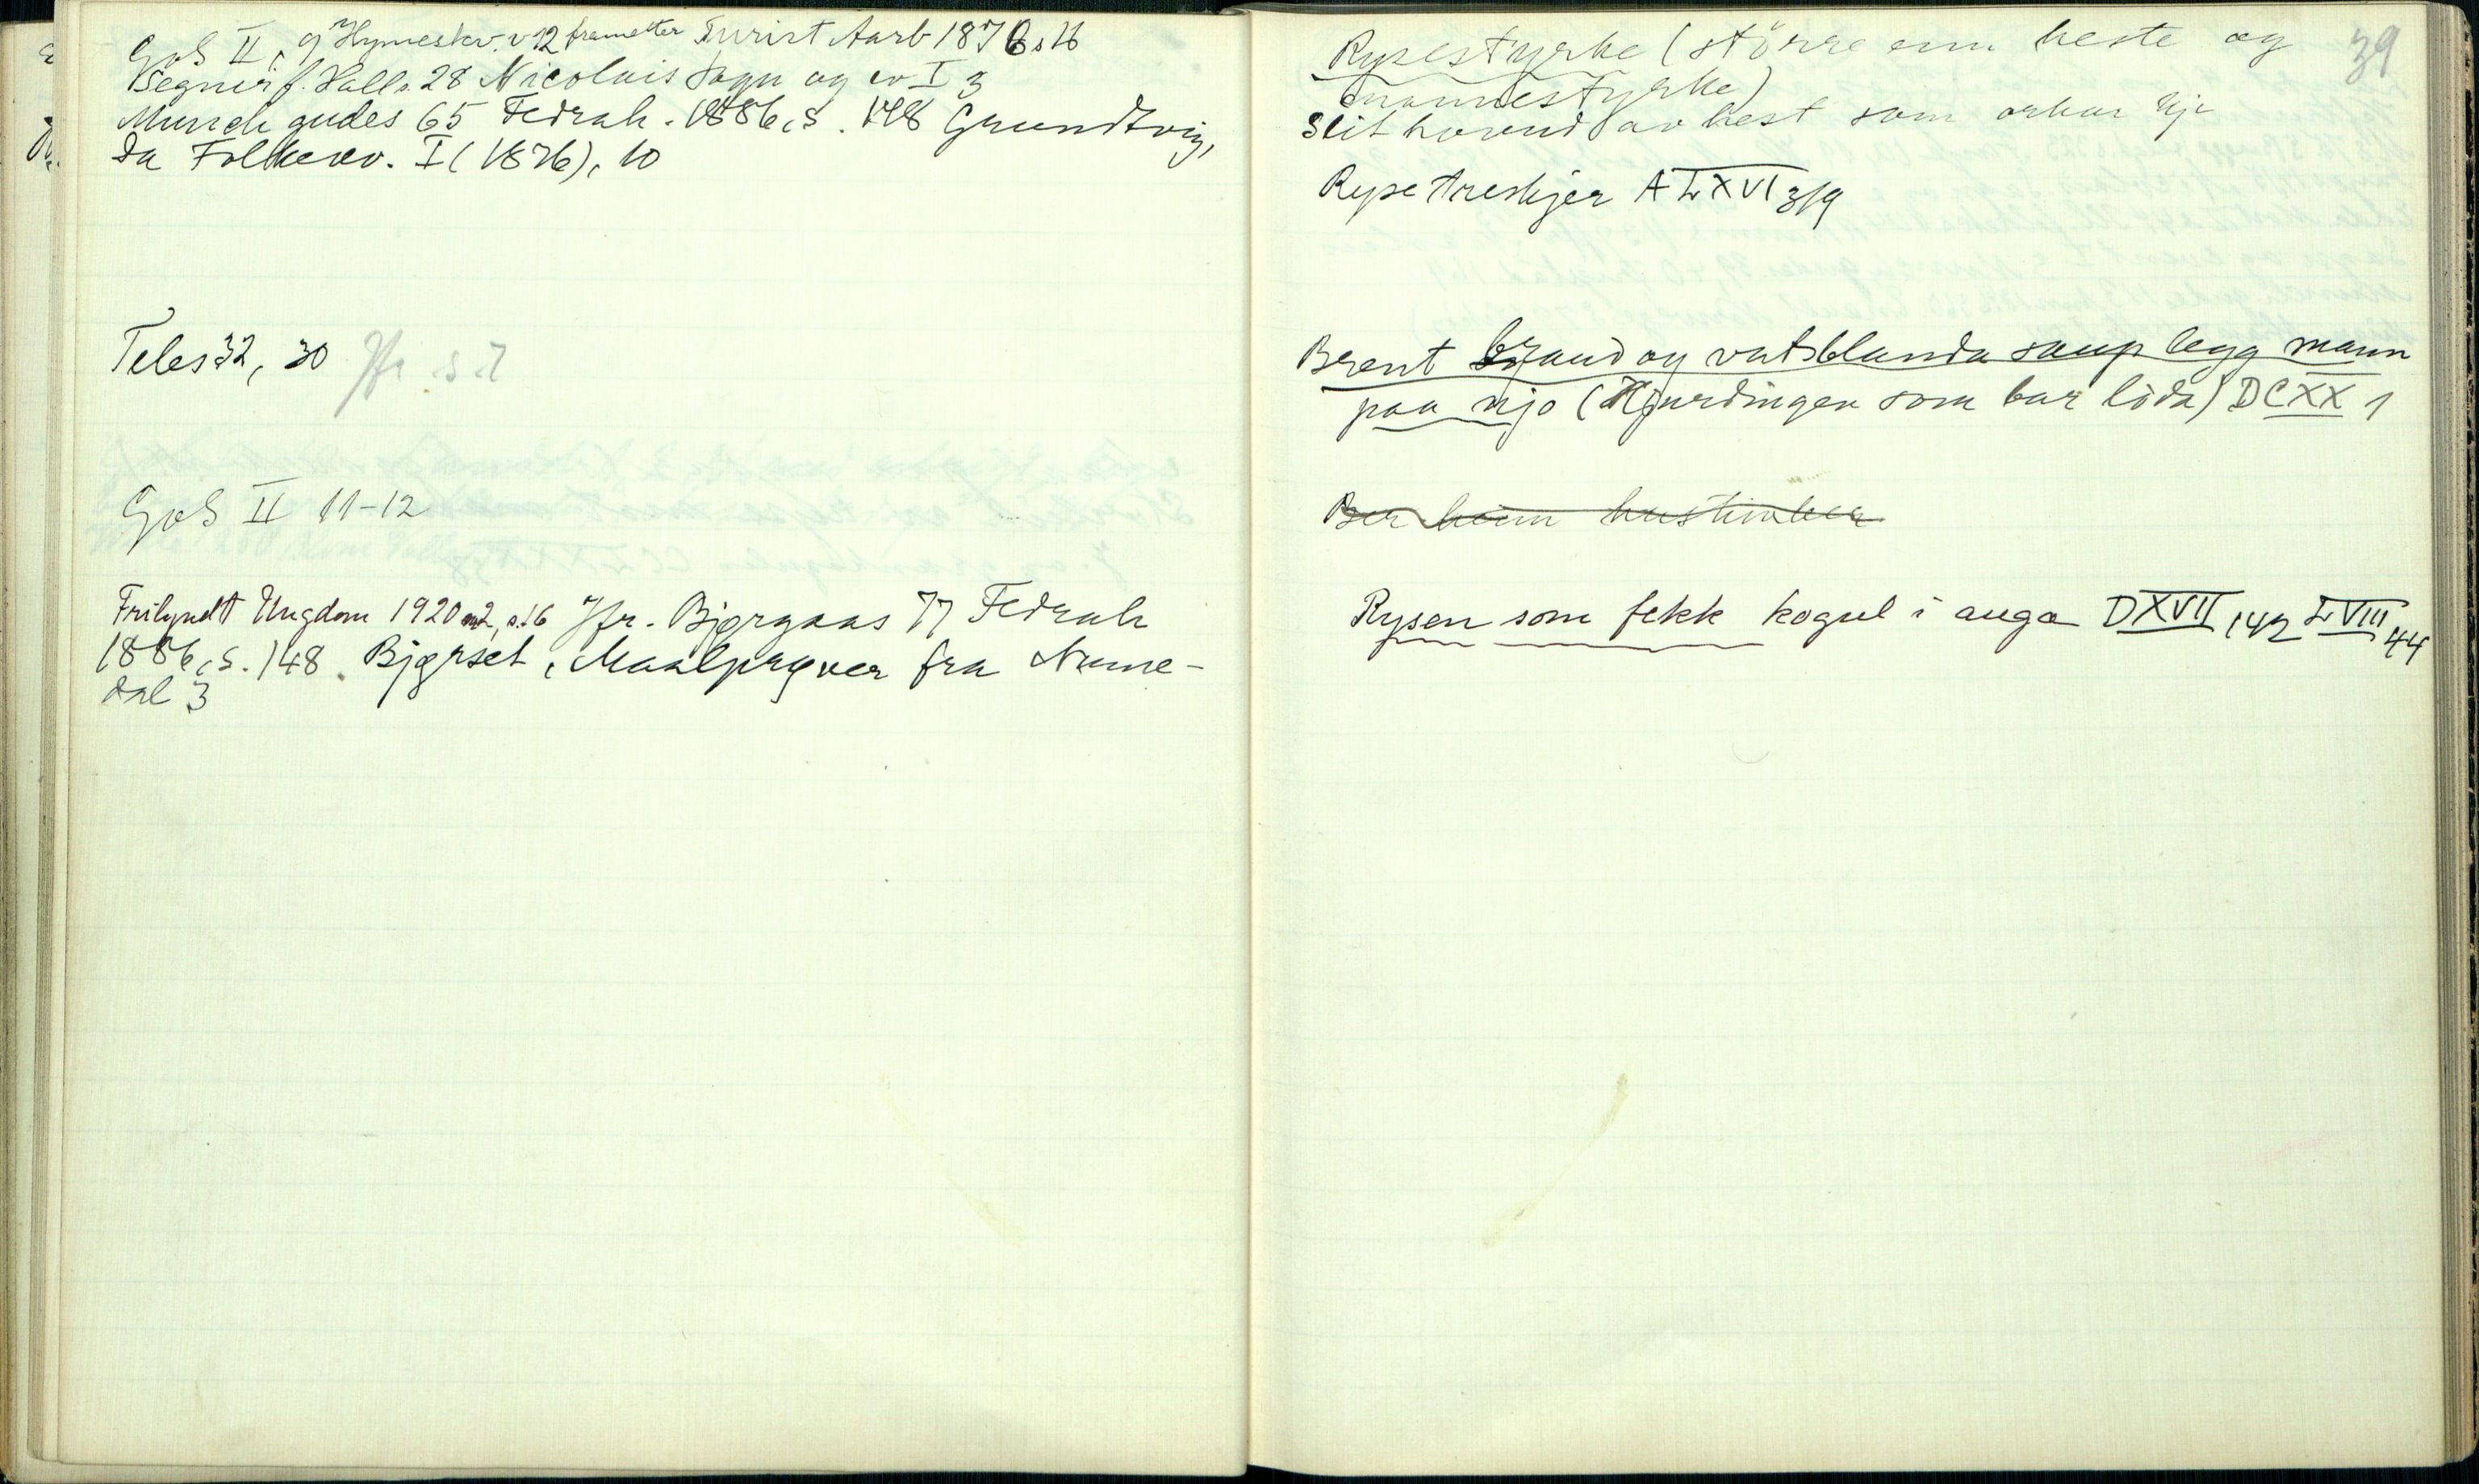 GoS II, 9 Hymeskv. v 12 frametter Turist Aarb 1876 s 16
Segner f. Hall s. 28 Nicolais Sagn og ev I 3
Munch gudes 65 Fedrah. 1886, s. 148 Grundtvig,
Da Folkeæv. I (1876), 10
Teles 32, 30 Jfr s 7
GoS II 11-12
Frilyndt Ungdom 1920 m2, s. 16 Jfr. Bjørgaas 77 Fedrah
1886, s. 148. Bjørset, Maalprøver fra Nume-
dal 3
39
Rysestyrke (större enn heste og
mannestyrke)
Slit hovud av hest som orkar ikje
Ryse treskjer A LXVI 319
Brent braud og vatsblanda saup legg mann
paa njo (Kjurdingen som bar löda) DCXX 1
Ber heim hustimber
Rysen som fekk kogul i auga DXVII 142 LVIII 44